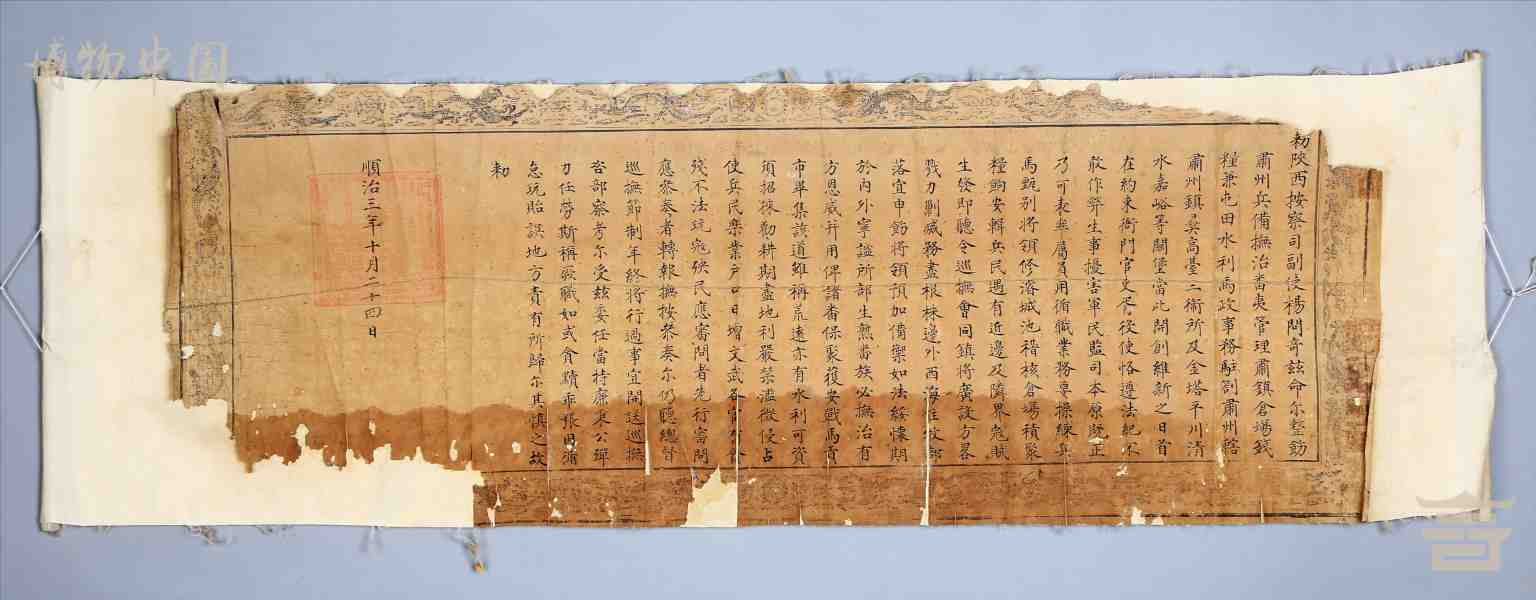 勅陝西按察司副使楊問奇茲命尔整飭
肅州兵備撫治畨夷管理肅鎮倉場錢
糧兼屯田水利馬政事務駐劄肅州轄
肅州鎮夷高臺二衛所及金塔平川清
水嘉峪等關堡當此開創維新之日首
在約束衙門官吏胥役使恪遵法紀不
敢作弊生事擾害軍民監司本原既正
乃可表率属員用脩職業務專操練兵
馬甄别將領修濬城池稽核倉場積聚
糧餉安輯兵民遇有近邊及隣界冦賊
生發即聽令巡撫會同鎮將廣設方畧
戮力剿滅務盡根株邊外西海住牧部
落宜申飭將領預加備禦如法綏懷期
於内外寧謐所部生熟畨族必撫治有
方恩威并用俾諸畨保聚獲安戰馬貢
市畢集該道雖稱荒遠亦有水利可資
須招徠勸耕期盡地利嚴禁濫徵侵占
使兵民樂業户口日增文武各官有貪
殘不法玩冦殃民應審問者先行審問
應叅奏者轉報撫按叅奏尔仍聽總督
巡撫節制年終將行過事宜開送巡撫
咨部察考尔受茲委任當持廉秉公殫
力任勞斯稱厥職如或貪黷乖張因循
怠玩貽誤地方責有所歸尔其慎之故
勅
順治三年十月二十四日
博物中国